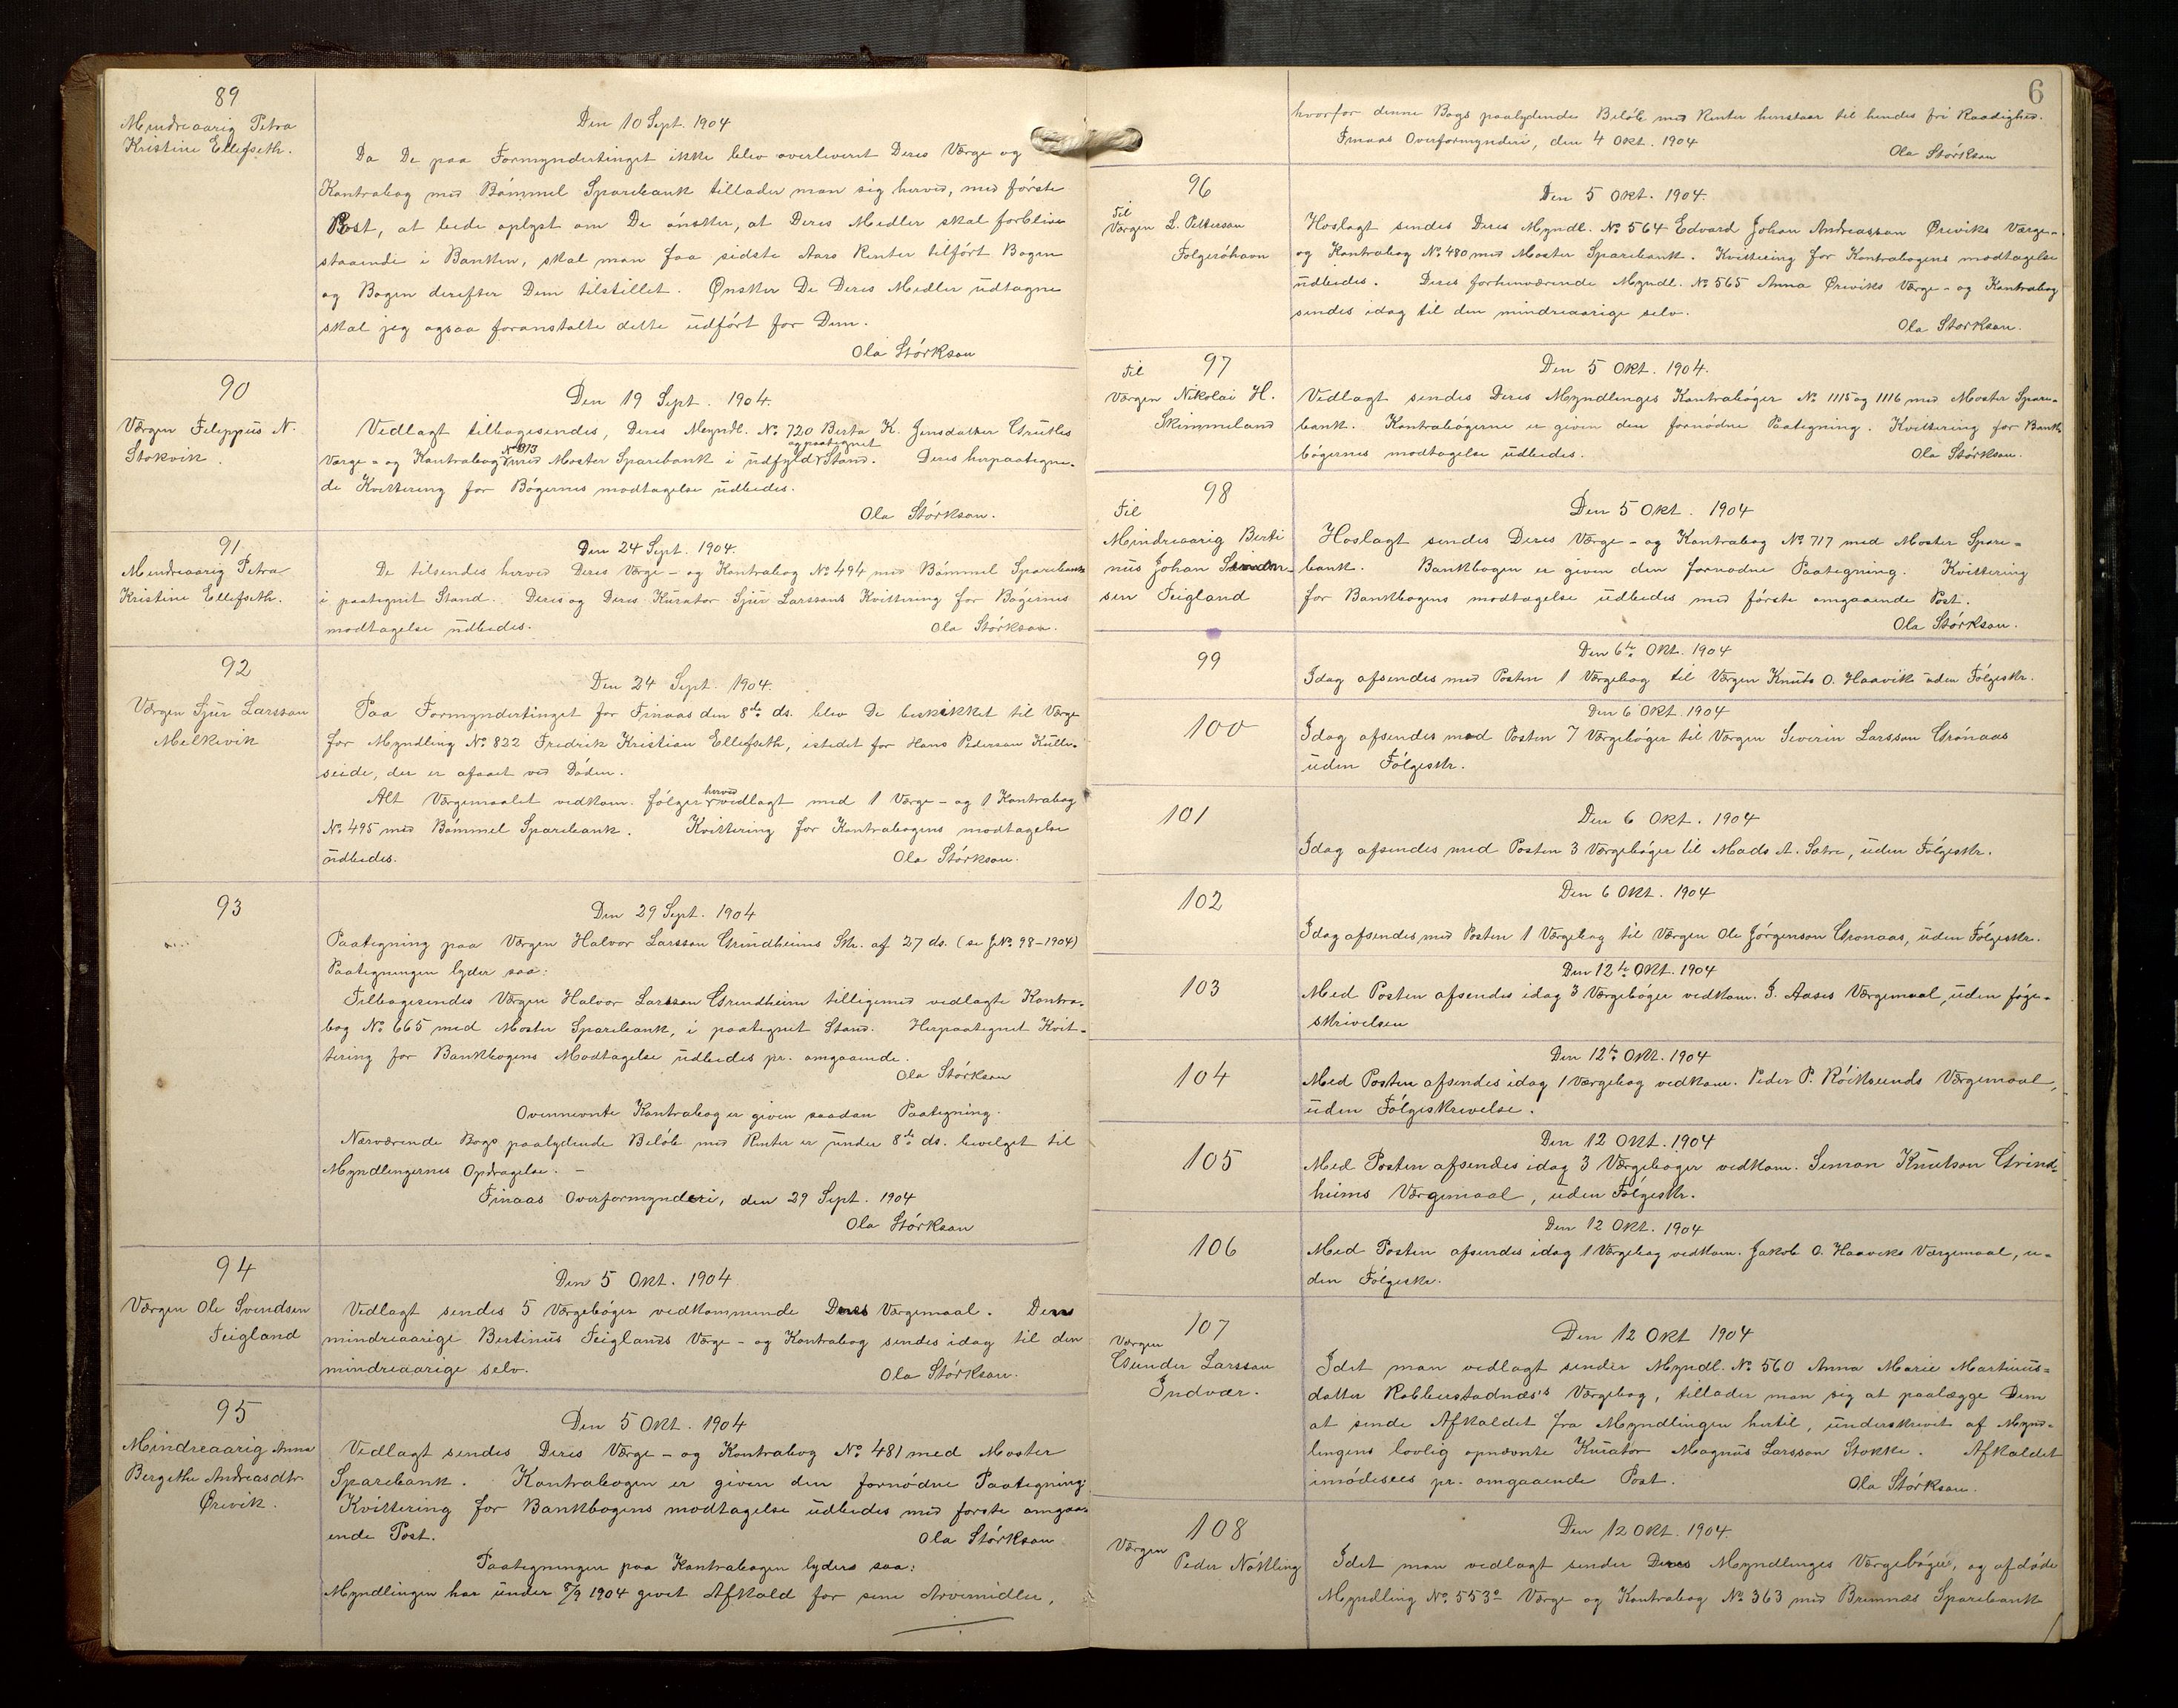 89
Mindreaarig Petra
Kristine Ellefseth.
Den 10 Sept. 1904
Da De paa Formyndertinget ikke blev overleveret Deres Værge og
Kontrabog med Bømmel Sparebank tillader man sig herved, med første
Post, at bede oplyst om De ønsker, at Deres Midler skal forblive
staaende i Banken, skal man faa sidste Aars Renter tilført Bogen
og Bogen derefter Dem tilstillet. Ønsker De Deres Midler udtagne
skal jeg ogsaa foranstalte dette udført for Dem.
Ola Størkson
90
Værgen Filippus N.
Stokvik.
Den 19 Sept. 1904.
Vedlagt tilbagesendes, Deres Myndl. No. 720 Berta K. Jensdatter Grutles
Værge- og Kontrabog No 873 med Moster Sparebank i udfyldt og paategnet Stand. Deres herpaategne-
de Kvittering for Bøgernes modtagelse udbedes.
Ola Størkson.
91
Mindreaarig Petra
Kristine Ellefseth.
Den 24 Sept. 1904.
De tilsendes herved Deres Værge- og Kontrabog No 494 med Bømmel Sparebank
i paategnet Stand. Deres og Deres Kurator Sjur Larssons Kvittering for Bøgernes
modtagelse udbedes.
Ola Størkson.
92
Værgen Sjur Larsson
Melkevik
Den 24 Sept. 1904.
Paa Formyndertinget for Finaas den 8de ds. blev De beskikket til Værge
for Myndling No. 822 Fredrik Kristian Ellefseth, istedet for Hans Pederson Kulle-
seide, der er afgaaet ved Døden.
Alt Værgemaalet vedkom. følger herved vedlagt med 1 Værge- og 1 Kontrabog
No 495 med Bømmel Sparebank. Kvittering for Kontrabogens modtagelse
udbedes.
Ola Størkson.
93
Den 29 Sept. 1904
Paategning paa Værgen Halvor Larsson Grindheims Skr. af 27 ds. (se J.No. 98-1904)
Paategningen lyder saa:
Tilbagesendes Værgen Halvor Larsson Grindheim tilligemed vedlagte Kontra-
bog No. 665 med Moster Sparebank, i paategnet Stand. Herpaategnet Kvit-
tering for Bankbogens Modtagelse udbedes pr. omgaaende.
Ola Størkson
Ovennevnte Kontrabog er given saadan Paategning.
Nærværende Bogs paalydende Beløb med Renter er under 8de ds. bevilget til
Myndlingernes Opdragelse. -
Finaas Overformynderi, den 29 Sept. 1904
Ola Størkson
94
Værgen Ole Svendsen
Feigland
Den 5 Okt. 1904
Vedlagt sendes 5 Værgebøger vedkommende Deres Værgemaal. Den
mindreaarige Bertinus Feiglands Værge- og Kontrabog sendes idag til den
mindreaarige selv.
Ola Størkson.
95
Mindreaarig Anna
Bergethe Andreasdtr.
Ørevik.
Den 5 Okt. 1904
Vedlagt sendes Deres Værge- og Kontrabog No. 481 med Moster
Sparebank. Kontrabogen er given den fornødne Paategning.
Kvittering for Bankbogens modtagelse udbedes med første omgaa-
ende Post.
Ola Størkson
Paategningen paa Kontrabogen lyder saa:
Myndlingen har under 8/9 1904 givet Afkald for sine Arvemidler,
6
hvorfor denne Bogs paalydende Beløb med Renter henstaar til hendes fri Raadighed.
Finaas Overformynderi, den 4 Okt. 1904
Ola Størkson
96
Til
Værgen L. Petterson
Folgerøhavn
Den 5 Okt. 1904.
Hoslagt sendes Deres Myndl. No 564 Edvard Johan Andreasson Øreviks Værge-
og Kontrabog No. 480 med Moster Sparebank. Kvittering for Kontrabogens modtagelse
udbedes. Deres forhenværende Myndl. No 565 Anna Øreviks Værge- og Kontrabog
sendes idag til den mindreaarige selv.
Ola Størkson.
97
Til
Værgen Nikolai H.
Skimmeland
Den 5 Okt. 1904.
Vedlagt sendes Deres Myndlinges Kontrabøger No 1115 og 1116 med Moster Spare-
bank. Kontrabøgerne er given den fornødne Paategning. Kvittering for Bank-
bøgernes modtagelse udbedes.
Ola Størkson.
98
Til
Mindreaarig Berti
nus Johan Svend-
sen Feigland
Den 5 Okt. 1904
Hoslagt sendes Deres Værge- og Kontrabog No 717 med Moster Spare-
bank. Bankbogen er given den fornødne Paategning. Kvittering
for Bankbogens modtagelse udbedes med første omgaaende Post.
Ola Størkson.
99
Den 6te Okt. 1904
Idag afsendes med Posten 1 Værgebog til Værgen Knuts O. Haavik uden Følgeskr.
100
Den 6 Okt. 1904
Idag afsendes med Posten 7 Værgebøger til Værgen Severin Larsson Grønaas
uden Følgeskr.
101
Den 6 Okt. 1904
Idag afsendes med Posten 3 Værgebøger til Mads A. Sætre, uden Følgeskr.
102
Den 6 Okt. 1904
Idag afsendes med Posten 1 Værgebog til Værgen Ole Jørgenson Grønaas, uden Følgeskr.
103
Den 12te Okt. 1904
Med Posten afsendes idag 3 Værgebøger vedkom. J. Aases Værgemaal, uden føge-
skrivelsen
104
Den 12te Okt. 1904
Med Posten afsendes idag 1 Værgebog vedkom. Peder P. Røiksunds Værgemaal,
uden Følgeskrivelse.
105
Den 12 Okt. 1904
Med Posten afsendes idag 3 Værgebøger vedkom. Simon Knutson Grind-
heims Værgemaal, uden Følgeskr.
106
Den 12 Okt. 1904
Med Posten afsendes idag 1 Værgebog vedkom. Jakob O. Haaviks Værgemaal, u-
den Følgeskr.
107
Værgen
Gunder Larsson
Indvær.
Den 12 Okt 1904
Idet man vedlagt sender Myndl. No 560 Anna Marie Martinus-
datter Robberstadnæs's Værgebog, tillader man sig at paalægge Dem
at sende Afkaldet fra Myndlingen hertil, underskrevet af Mynd-
lingens lovlig opnævnte Kurator Magnus Larsson Stokke. Afkaldet
imødesees pr. omgaaende Post.
Ola Størkson.
108
Værgen
Peder Nøttling
Den 12 Okt. 1904.
Idet man vedlagt sender Deres Myndlinges Værgebøger, og afdøde
Myndling No 553a Værge og Kontrabog No 363 med Bremnæs Sparebank